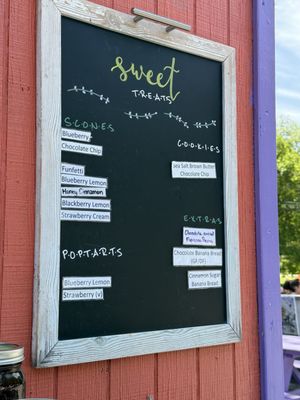 sweet
TREATS
SCONES
Blueberry
Chocolate Chip
Funfetti
Blueberry Lemon
Honey Cinnamon
Blackberry Lemon
Strawberry Cream
POPTARTS
Blueberry Lemon
Strawberry (v)
COOKIES
Sea Salt Brown Butter
Chocolate Chip
EXTRAS
Chocolate
Chocolate Banana Bread
(GF/DF)
Cinnamon Sugar
Banana Bread